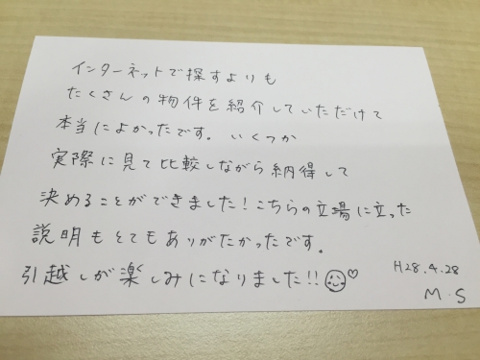 インターネットで探すよりも
たくさんの物件を紹介していただけて
本当によかったです。いくつか
実際に見て比較しながら納得して
決めることができました!こちらの立場に立った
説明もとてもありがたかったです。
引越しが楽しみになりました!!
H28.4.28
M.S